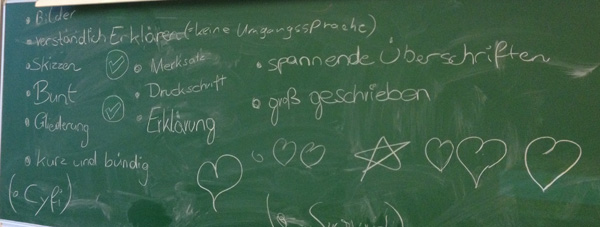 • Bilder
• verständlich Erklären (= keine Umgangssprache)
• Skizzen
• Bunt
• Gliederung
• kurz und bündig
• Merksatz
• Druckschrift
• Erklärung
• spannende Überschriften
• groß geschrieben